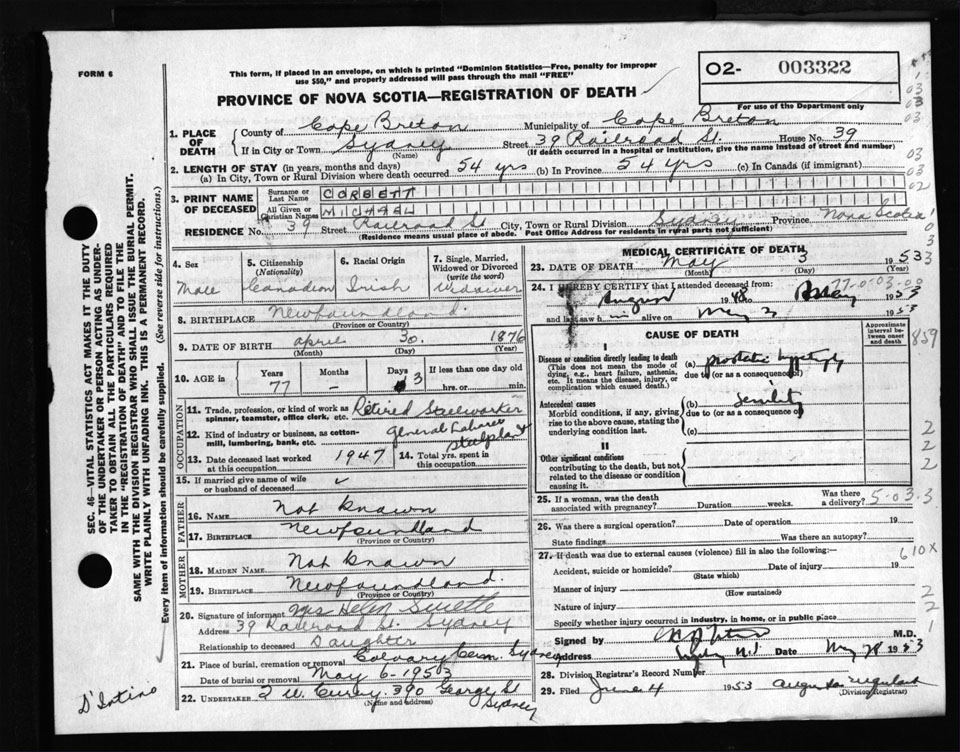 FORM 6
This form, if placed in an envelope, on which is printed "Dominion Statistics—Free, penalty for improper use $50," and properly addressed will pass through the mail "FREE"
02- 003322
For use of the Department only
PROVINCE OF NOVA SCOTIA—REGISTRATION OF DEATH
1. PLACE OF DEATH
County of Cape Breton Municipality of Cape Breton
If in City or Town Sydney Street 39 Railroad St. House No. 39
(Name) (If death occurred in a hospital or institution, give the name instead of street and number)
2. LENGTH OF STAY (in years, months and days)
(a) In City, Town or Rural Division where death occurred 54 yrs (b) In Province 54 yrs (c) In Canada (if immigrant)
3. PRINT NAME OF DECEASED
Surname or Last Name CORBETT
All Given or Christian Names MICHAEL
RESIDENCE No. 39 Street Railroad St City, Town or Rural Division Sydney Province Nova Scotia
(Residence means usual place of abode. Post Office Address for residents in rural parts not sufficient)
4. Sex
Male
5. Citizenship (Nationality)
Canadian
6. Racial Origin
Irish
7. Single, Married, Widowed or Divorced (write the word)
Widower
8. BIRTHPLACE Newfoundland.
(Province or Country)
9. DATE OF BIRTH April 30. 1876
(Month) (Day) (Year)
10. AGE in Years 77 Months - Days 3 If less than one day old hrs. or min.
OCCUPATION
11. Trade, profession, or kind of work as spinner, teamster, office clerk, etc. Retired Steelworker
12. Kind of industry or business, as cotton-mill, lumbering, bank, etc. General Laborer Steelplant
13. Date deceased last worked at this occupation 1947
14. Total yrs. spent in this occupation
15. If married give name of wife or husband of deceased ✓
FATHER
16. NAME Not Known
17. BIRTHPLACE Newfoundland
(Province or Country)
MOTHER
18. MAIDEN NAME Not Known
19. BIRTHPLACE Newfoundland.
(Province or Country)
20. Signature of informant Mrs Helen
Address 39 Railroad St. Sydney
Relationship to deceased Daughter
21. Place of burial, cremation or removal Calvary Cem. Sydney
Date of burial or removal May 6-1953
22. UNDERTAKER 390 George St Sydney
(Name and address)
MEDICAL CERTIFICATE OF DEATH
23. DATE OF DEATH May 3 1953
(Month) (Day) (Year)
24. I HEREBY CERTIFY that I attended deceased from:
August 1948 to May 1953
and last saw him alive on May 2 1953
CAUSE OF DEATH
Approximate interval between onset and death
I
Disease or condition directly leading to death
(This does not mean the mode of dying, e.g., heart failure, asthenia, etc. It means the disease, injury, or complication which caused death.)
(a) prostatic hypertrophy
due to (or as a consequence of)
Antecedent causes
Morbid conditions, if any, giving rise to the above cause, stating the underlying condition last.
(b) Senility
due to (or as a consequence of)
(c)
II
Other significant conditions
contributing to the death, but not related to the disease or condition causing it.
25. If a woman, was the death associated with pregnancy? Duration weeks. Was there a delivery?
26. Was there a surgical operation? Date of operation 19
State findings Was there an autopsy?
27. If death was due to external causes (violence) fill in also the following:—
Accident, suicide or homicide? Date of injury 19
(State which)
Manner of injury
(How sustained)
Nature of injury
Specify whether injury occurred in industry, in home, or in public place
Signed by M.D.
Address Sydney N.S. Date May 1953
28. Division Registrar's Record Number
29. Filed June 4 1953
(Division Registrar)
SEC. 46—VITAL STATISTICS ACT MAKES IT THE DUTY OF THE UNDERTAKER OR PERSON ACTING AS UNDERTAKER TO OBTAIN ALL THE PARTICULARS REQUIRED IN THE "REGISTRATION OF DEATH" AND TO FILE THE SAME WITH THE DIVISION REGISTRAR WHO SHALL ISSUE THE BURIAL PERMIT.
WRITE PLAINLY WITH UNFADING INK. THIS IS A PERMANENT RECORD.
Every item of information should be carefully supplied. (See reverse side for instructions.)
77-0-03-00
859
5-03.3
610X
D'Intino